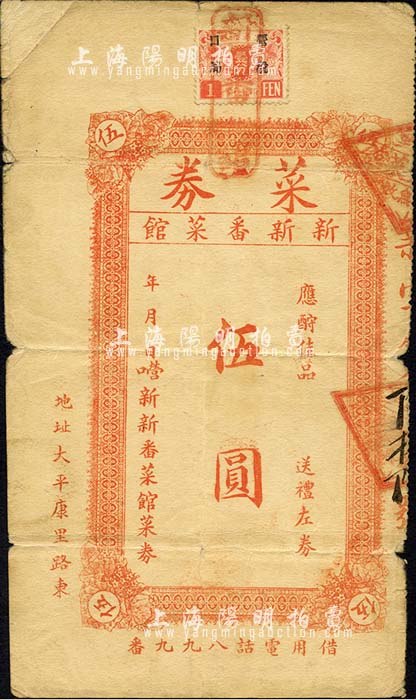 上海陽明拍賣
www.yangmingauction.com
營
口
1
FEN
伍
菜券
新新番菜館
應酧佳品 送禮左券
伍圓
年月日 營新新番菜館菜券
地址大平康里路東
上海陽明拍賣
www.yangmingauction.com
伍
伍
上海陽明拍賣
www.yangmingauction.com
借用電話八九九番